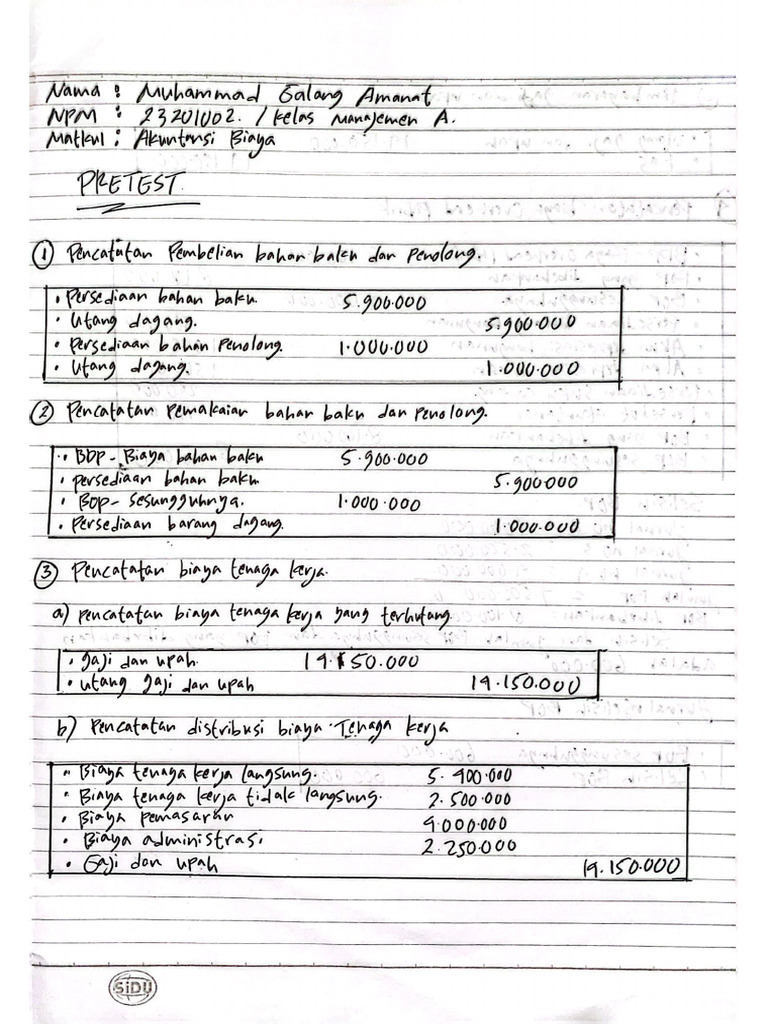 Nama : Muhammad Galang Amanat
NPM : 23201002. / Kelas Manajemen A.
Matkul : Akuntansi Biaya
PRETEST.
① Pencatatan Pembelian bahan baku dan Penolong.
• Persediaan bahan baku. 5.900.000
• Utang dagang. 5.900.000
• Persediaan bahan Penolong. 1.000.000
• Utang dagang. 1.000.000
② Pencatatan Pemakaian bahan baku dan penolong.
• BDP - Biaya bahan baku 5.900.000
• persediaan bahan baku 5.900.000
• BOP - Sesungguhnya. 1.000.000
• Persediaan barang dagang. 1.000.000
③ Pencatatan biaya tenaga kerja.
a) pencatatan biaya tenaga kerja yang terhutang.
• gaji dan upah. 19.150.000
• utang gaji dan upah 19.150.000
b) Pencatatan distribusi biaya Tenaga kerja
• Biaya tenaga kerja langsung. 5.400.000
• Biaya tenaga kerja tidak langsung. 2.500.000
• Biaya pemasaran 9.000.000
• Biaya administrasi 2.250.000
• Gaji dan upah 19.150.000
SiDU